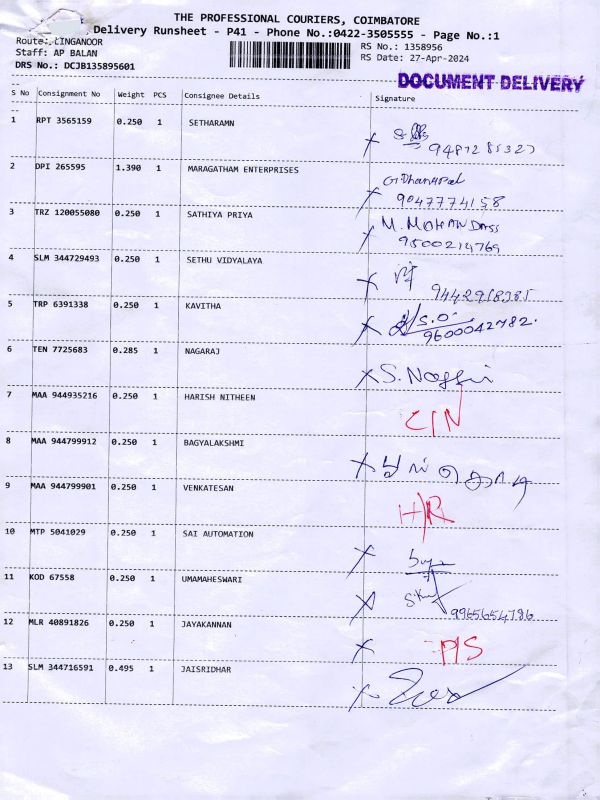 THE PROFESSIONAL COURIERS, COIMBATORE
Delivery Runsheet - P41 - Phone No.:0422-3505555 - Page No.:1
Route: LINGANOOR
RS No.: 1358956
Staff: AP BALAN
RS Date: 27-Apr-2024
DRS No.: DCJB135895601
DOCUMENT DELIVERY
S No Consignment No Weight PCS Consignee Details Signature
1 RPT 3565159 0.250 1 SETHARAMN
2 DPI 265595 1.390 1 MARAGATHAM ENTERPRISES
G Dhanapal
9047774158
3 TRZ 120055080 0.250 1 SATHIYA PRIYA
M. MOHAN DASS
9500214769
4 SLM 344729493 0.250 1 SETHU VIDYALAYA
9442958385
5 TRP 6391338 0.250 1 KAVITHA
S.O
9600042782.
6 TEN 7725683 0.285 1 NAGARAJ
7 MAA 944935216 0.250 1 HARISH NITHEEN
C/N
8 MAA 944799912 0.250 1 BAGYALAKSHMI
9 MAA 944799901 0.250 1 VENKATESAN
H/R
10 MTP 5041029 0.250 1 SAI AUTOMATION
11 KOD 67558 0.250 1 UMAMAHESWARI
9965654786
12 MLR 40891826 0.250 1 JAYAKANNAN
P/S
13 SLM 344716591 0.495 1 JAISRIDHAR